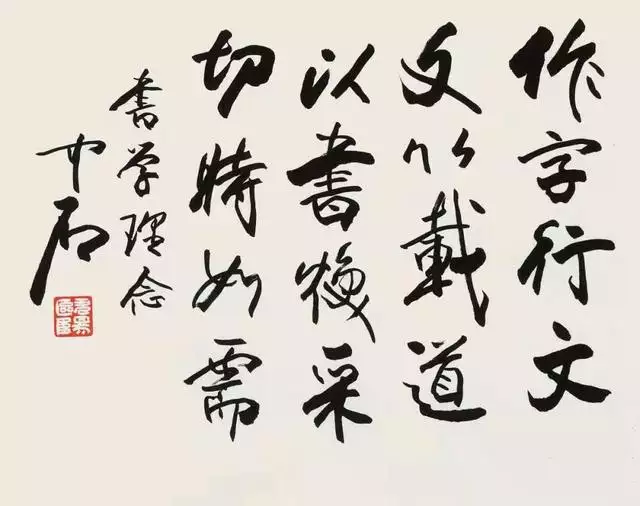 作字行文
文以載道
以書煥采
切時如需
書学理念
中石